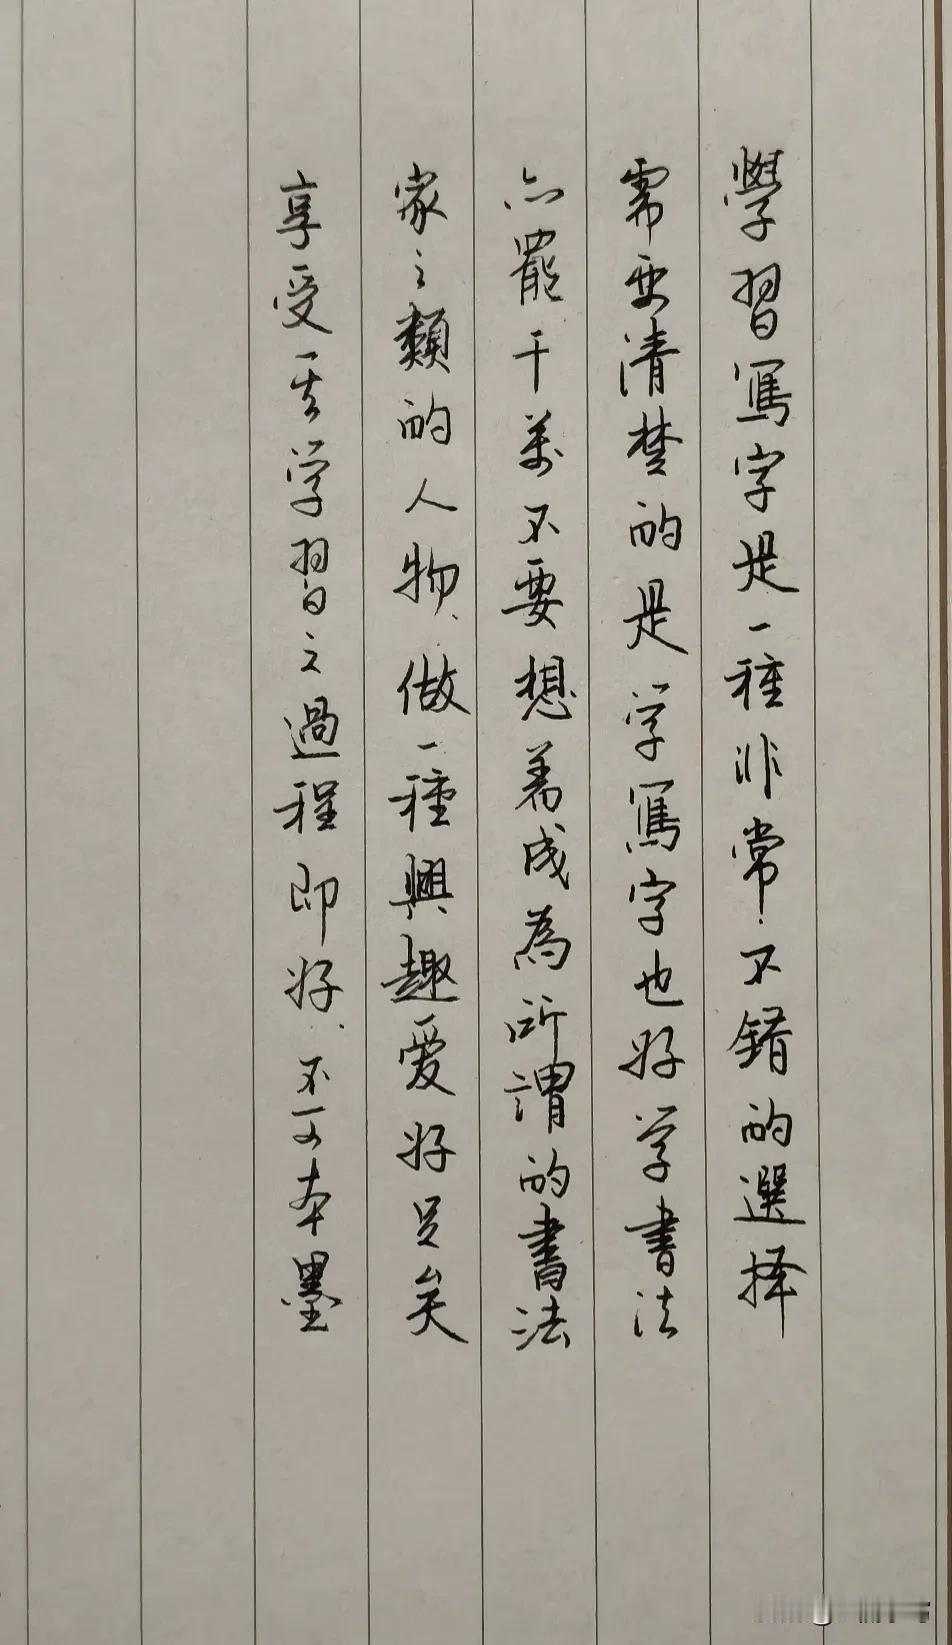 學習寫字是一種非常不錯的選择
需要清楚的是学寫字也好学書法
亦罷千萬不要想着成為所謂的書法
家之類的人物、做一種興趣爱好足矣
享受其学習之過程即好、不可本墨